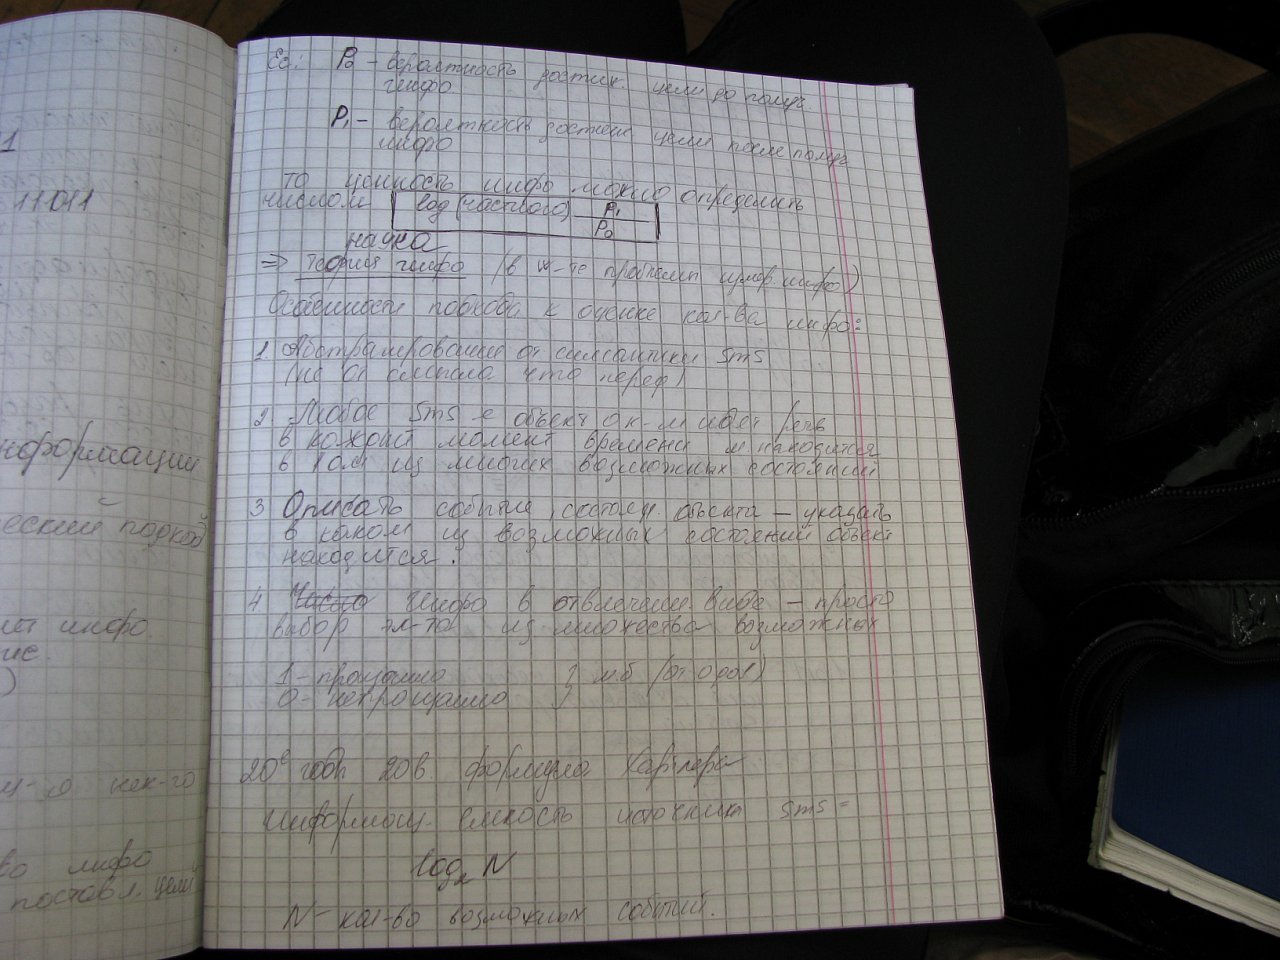 1
11011
нформации
еский подход
инфо.
ие.
)
во инфо
поставл. цели
Ес: P₀ – вероятность достиж. цели до получ
инфо
P₁ – вероятность достиж цели после получ
инфо
то ценность инфо можно определить
числом log (частного) P₁
P₀
наука
⇒ теория инфо (в к-те проблемы измер. инфо)
Особенности подхода к оценке кол-ва инфо:
1. Абстрагирование от семантики sms
(не от смысла что перед)
2. Любое sms о объект о к-м идет речь
в кажый момент времени и находится
в 1ом из многих возможных состояний
3 Описать событие, состоян. объекта – указать
в каком из возможных состояний объект
находится.
4 Число инфо в отвлеченн. виде – просто
выбор эл-та из множества возможных
1 – прощашо } м.б (от 0 до 1)
0 – непрощашо
20е годы 20 в формула Хартлера
информац. емкость источника sms =
log₂ N
N – кол-во возможных событий.